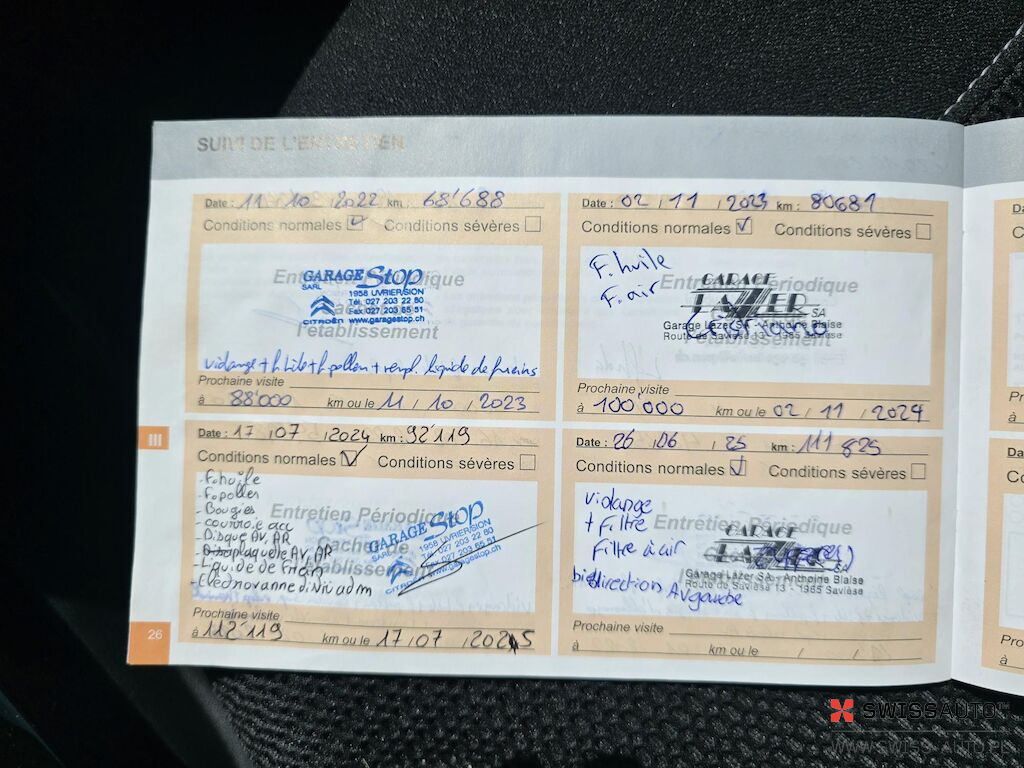 SUIVI DE L'ENTRETIEN
Date : 11 / 10 / 2022 km : 68'688
Conditions normales ☑ Conditions sévères ☐
Entretien Périodique
GARAGE Stop
SARL
1958 UVRIER/SION
Tél. 027 203 22 80
Fax 027 203 65 51
CITROËN www.garagestop.ch
l'établissement
vidange + f. huile + f. pollen + rempl. liquide de freins
Prochaine visite
à 88'000 km ou le 11 / 10 / 2023
Date : 02 / 11 / 2023 km : 80681
Conditions normales ☑ Conditions sévères ☐
F. huile
F. air
Entretien Périodique
GARAGE
LAZER SA
Garage Lazer SA - Anthoine Blaise
Route de Savièse 13 - 1965 Savièse
Prochaine visite
à 100'000 km ou le 02 / 11 / 2024
III
Date : 17 / 07 / 2024 km : 92'119
Conditions normales ☑ Conditions sévères ☐
- F. huile
- F. pollen
- Bougies
- courroie acc
- Disque AV, AR
- plaquette AV, AR
- Liquide de frein
- Electrovanne
Entretien Périodique
Cachet de
l'établissement
GARAGE Stop
SARL
1958 UVRIER/SION
Tél. 027 203 22 80
Fax 027 203 65 51
CITROËN www.garagestop.ch
Prochaine visite
à 112'119 km ou le 17 / 07 / 2025
Date : 26 / 06 / 25 km : 111 825
Conditions normales ☑ Conditions sévères ☐
vidange
+ Filtre
Filtre à air
direction AV gauche
Entretien Périodique
GARAGE
LAZER SA
Garage Lazer SA - Anthoine Blaise
Route de Savièse 13 - 1965 Savièse
Prochaine visite
à km ou le / /
26
SWISSAUTO
WWW.SWISS-AUTO.PL